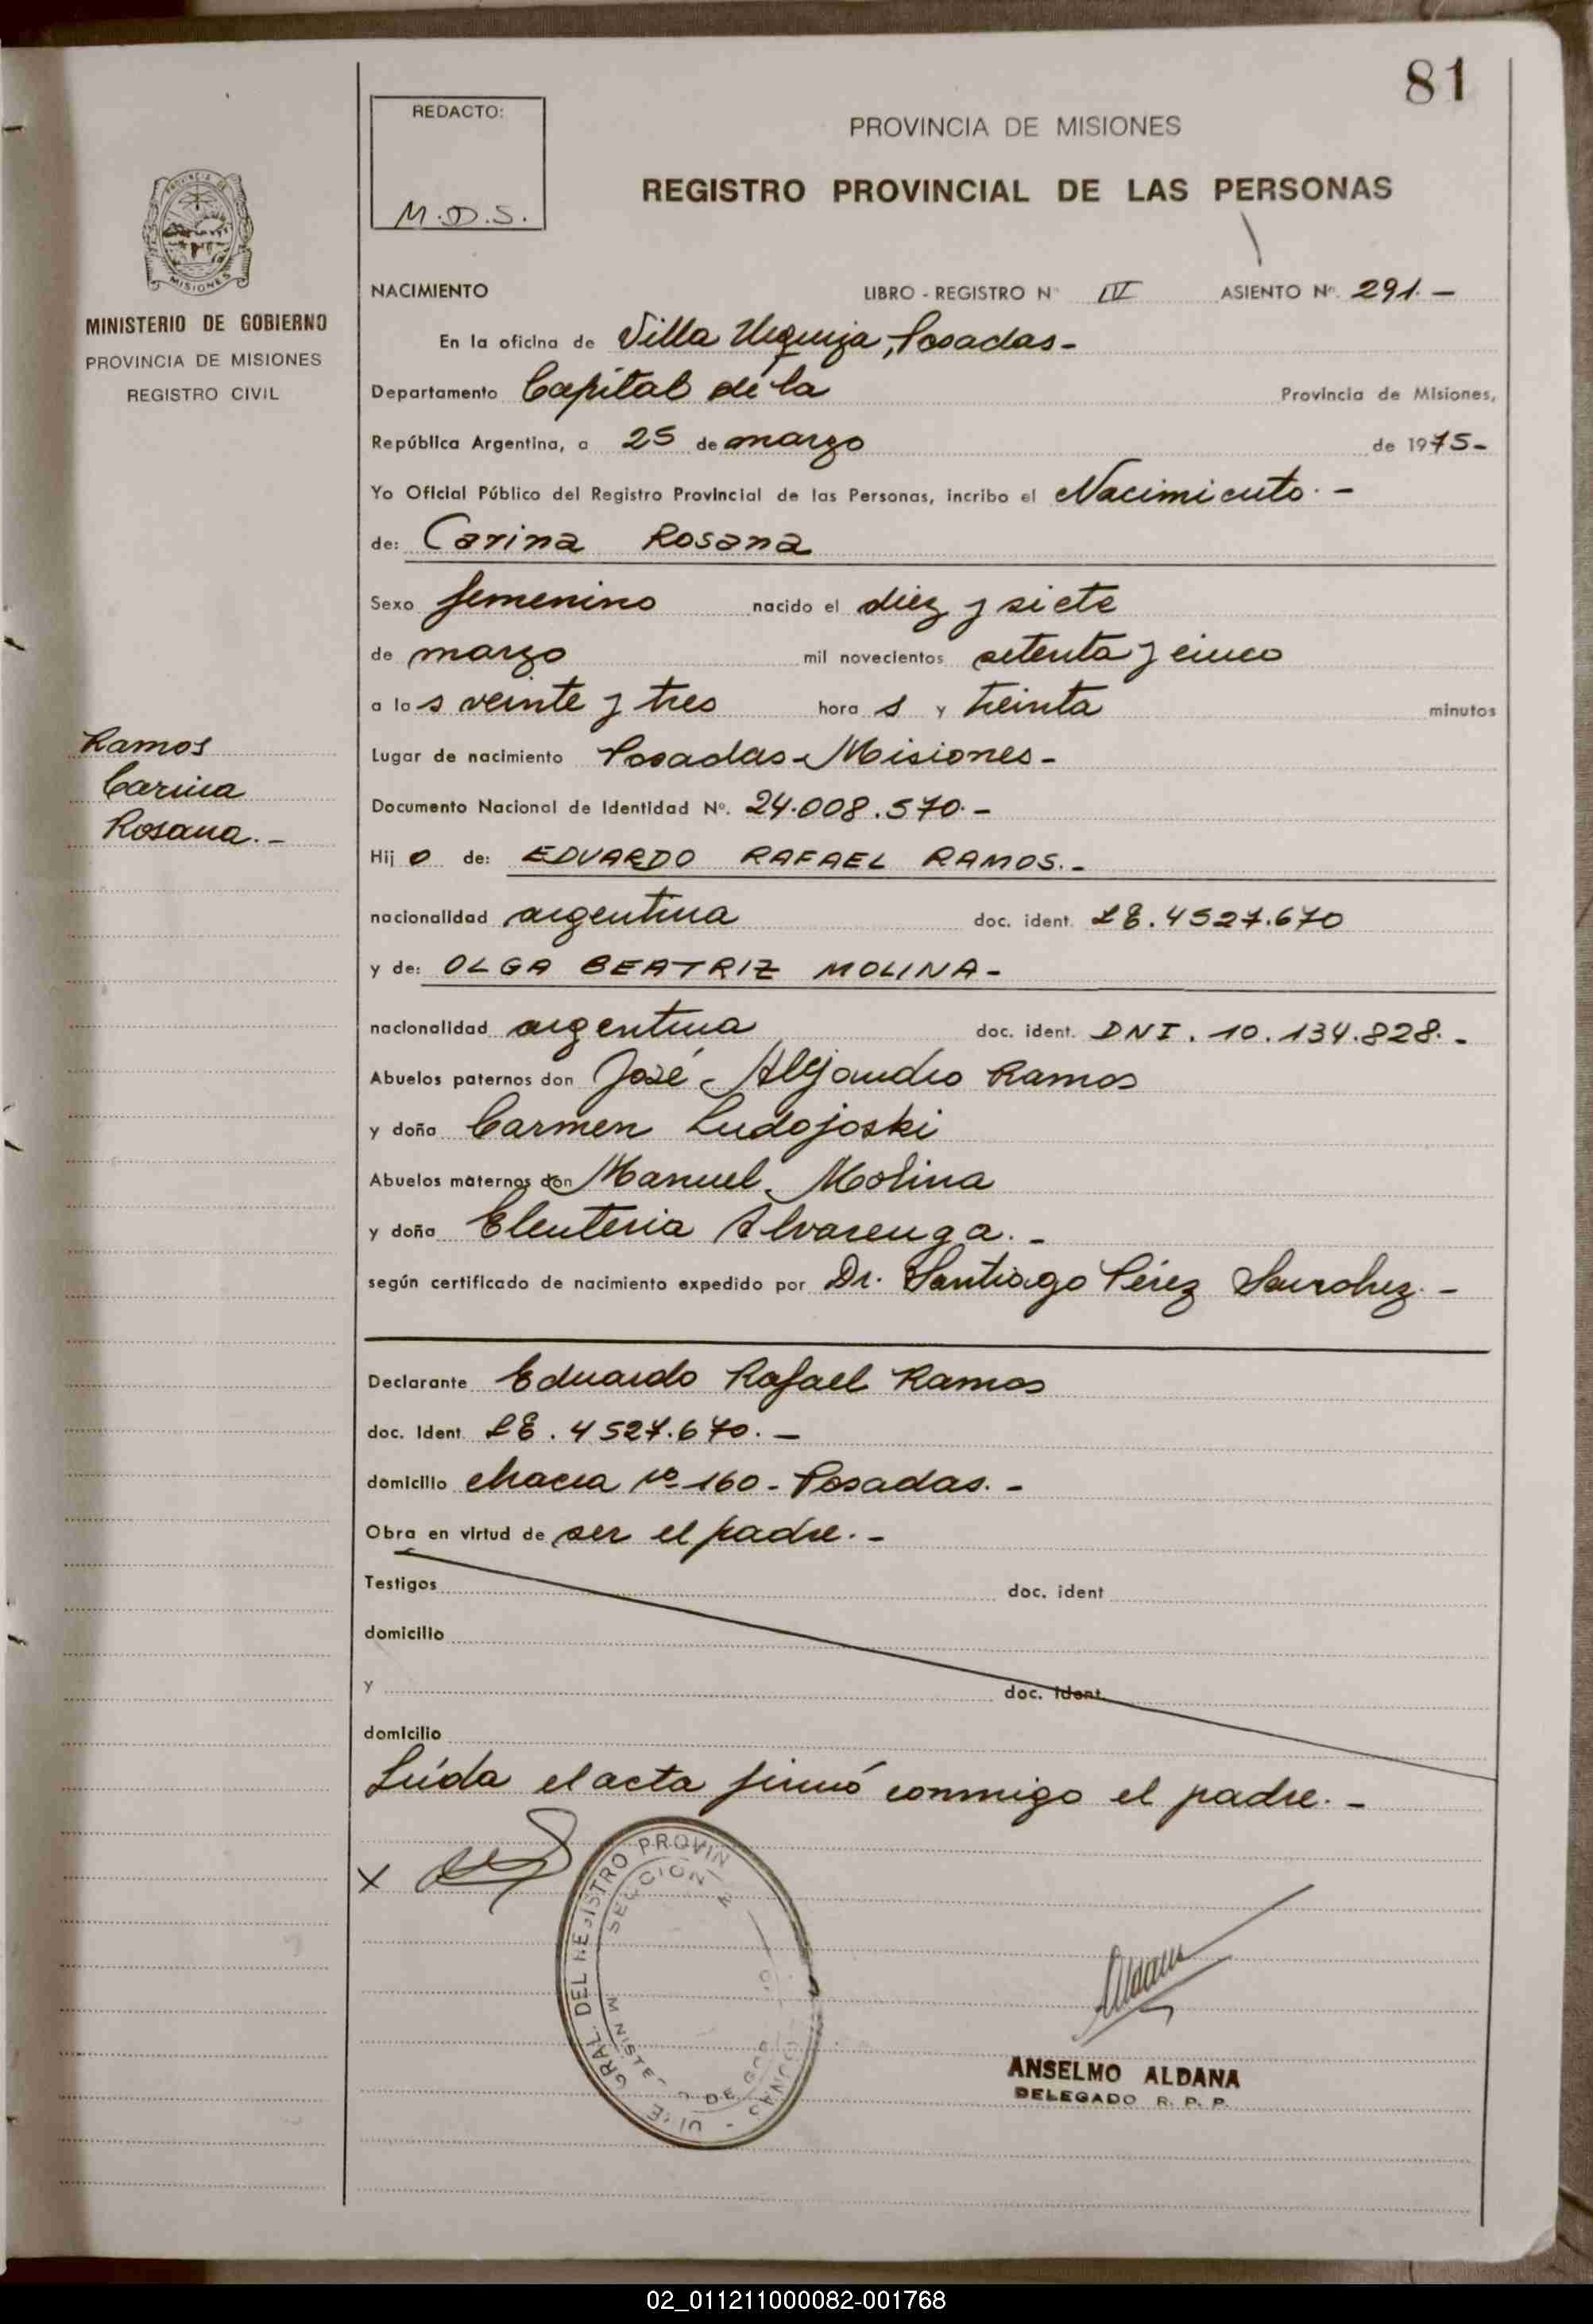 81
REDACTO:
M.D.S.
PROVINCIA DE MISIONES
REGISTRO PROVINCIAL DE LAS PERSONAS
PROVINCIA DE
MISIONES
MINISTERIO DE GOBIERNO
PROVINCIA DE MISIONES
REGISTRO CIVIL
NACIMIENTO LIBRO - REGISTRO N° IV ASIENTO Nº. 291.-
En la oficina de Villa Urquiza, Posadas-
Departamento Capital de la Provincia de Misiones,
República Argentina, a 25 de marzo de 1975-
Yo Oficial Público del Registro Provincial de las Personas, incribo el Nacimiento.-
de: Carina Rosana
Sexo femenino nacido el diez y siete
de marzo mil novecientos setenta y cinco
a las veinte y tres horas y treinta minutos
Lugar de nacimiento Posadas-Misiones-
Documento Nacional de Identidad Nº. 24.008.570.-
Hijo de: EDUARDO RAFAEL RAMOS.-
nacionalidad argentina doc. ident. LE.4527.670
y de: OLGA BEATRIZ MOLINA-
nacionalidad argentina doc. ident. DNI. 10.134.828.-
Abuelos paternos don José Alejandro Ramos
y doña Carmen Ludojoski
Abuelos maternos don Manuel Molina
y doña Eleuteria Alvarenga.-
según certificado de nacimiento expedido por Dr. Santiago Pérez Sanchez.-
Ramos
Carina
Rosana.-
Declarante Eduardo Rafael Ramos
doc. Ident. LE. 4527.670.-
domicilio chacra nº 160- Posadas.-
Obra en virtud de ser el padre.-
Testigos doc. ident
domicilio
y doc. ident.
domicilio
Leída el acta firmó conmigo el padre.-
x
GRAL. DEL REGISTRO PROVIN
SECCION
MINISTE DE GOB
Aldana
ANSELMO ALDANA
DELEGADO R. P. P.
02_011211000082-001768